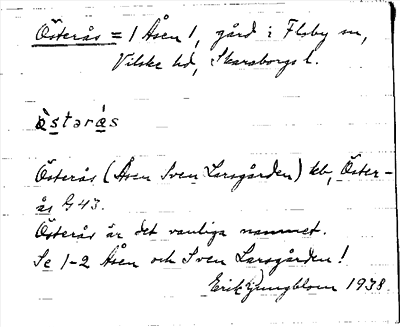 Österås = 1 Åsen 1, gård i Floby sn,
Vilske hd, Skaraborgs l.
östərås
Österås (Åsen Sven Larsgården) kb, Öster-
ås G 43.
Österås är det vanliga namnet.
Se 1-2 Åsen och Sven Larsgården!
Erik Ljungblom 1938.